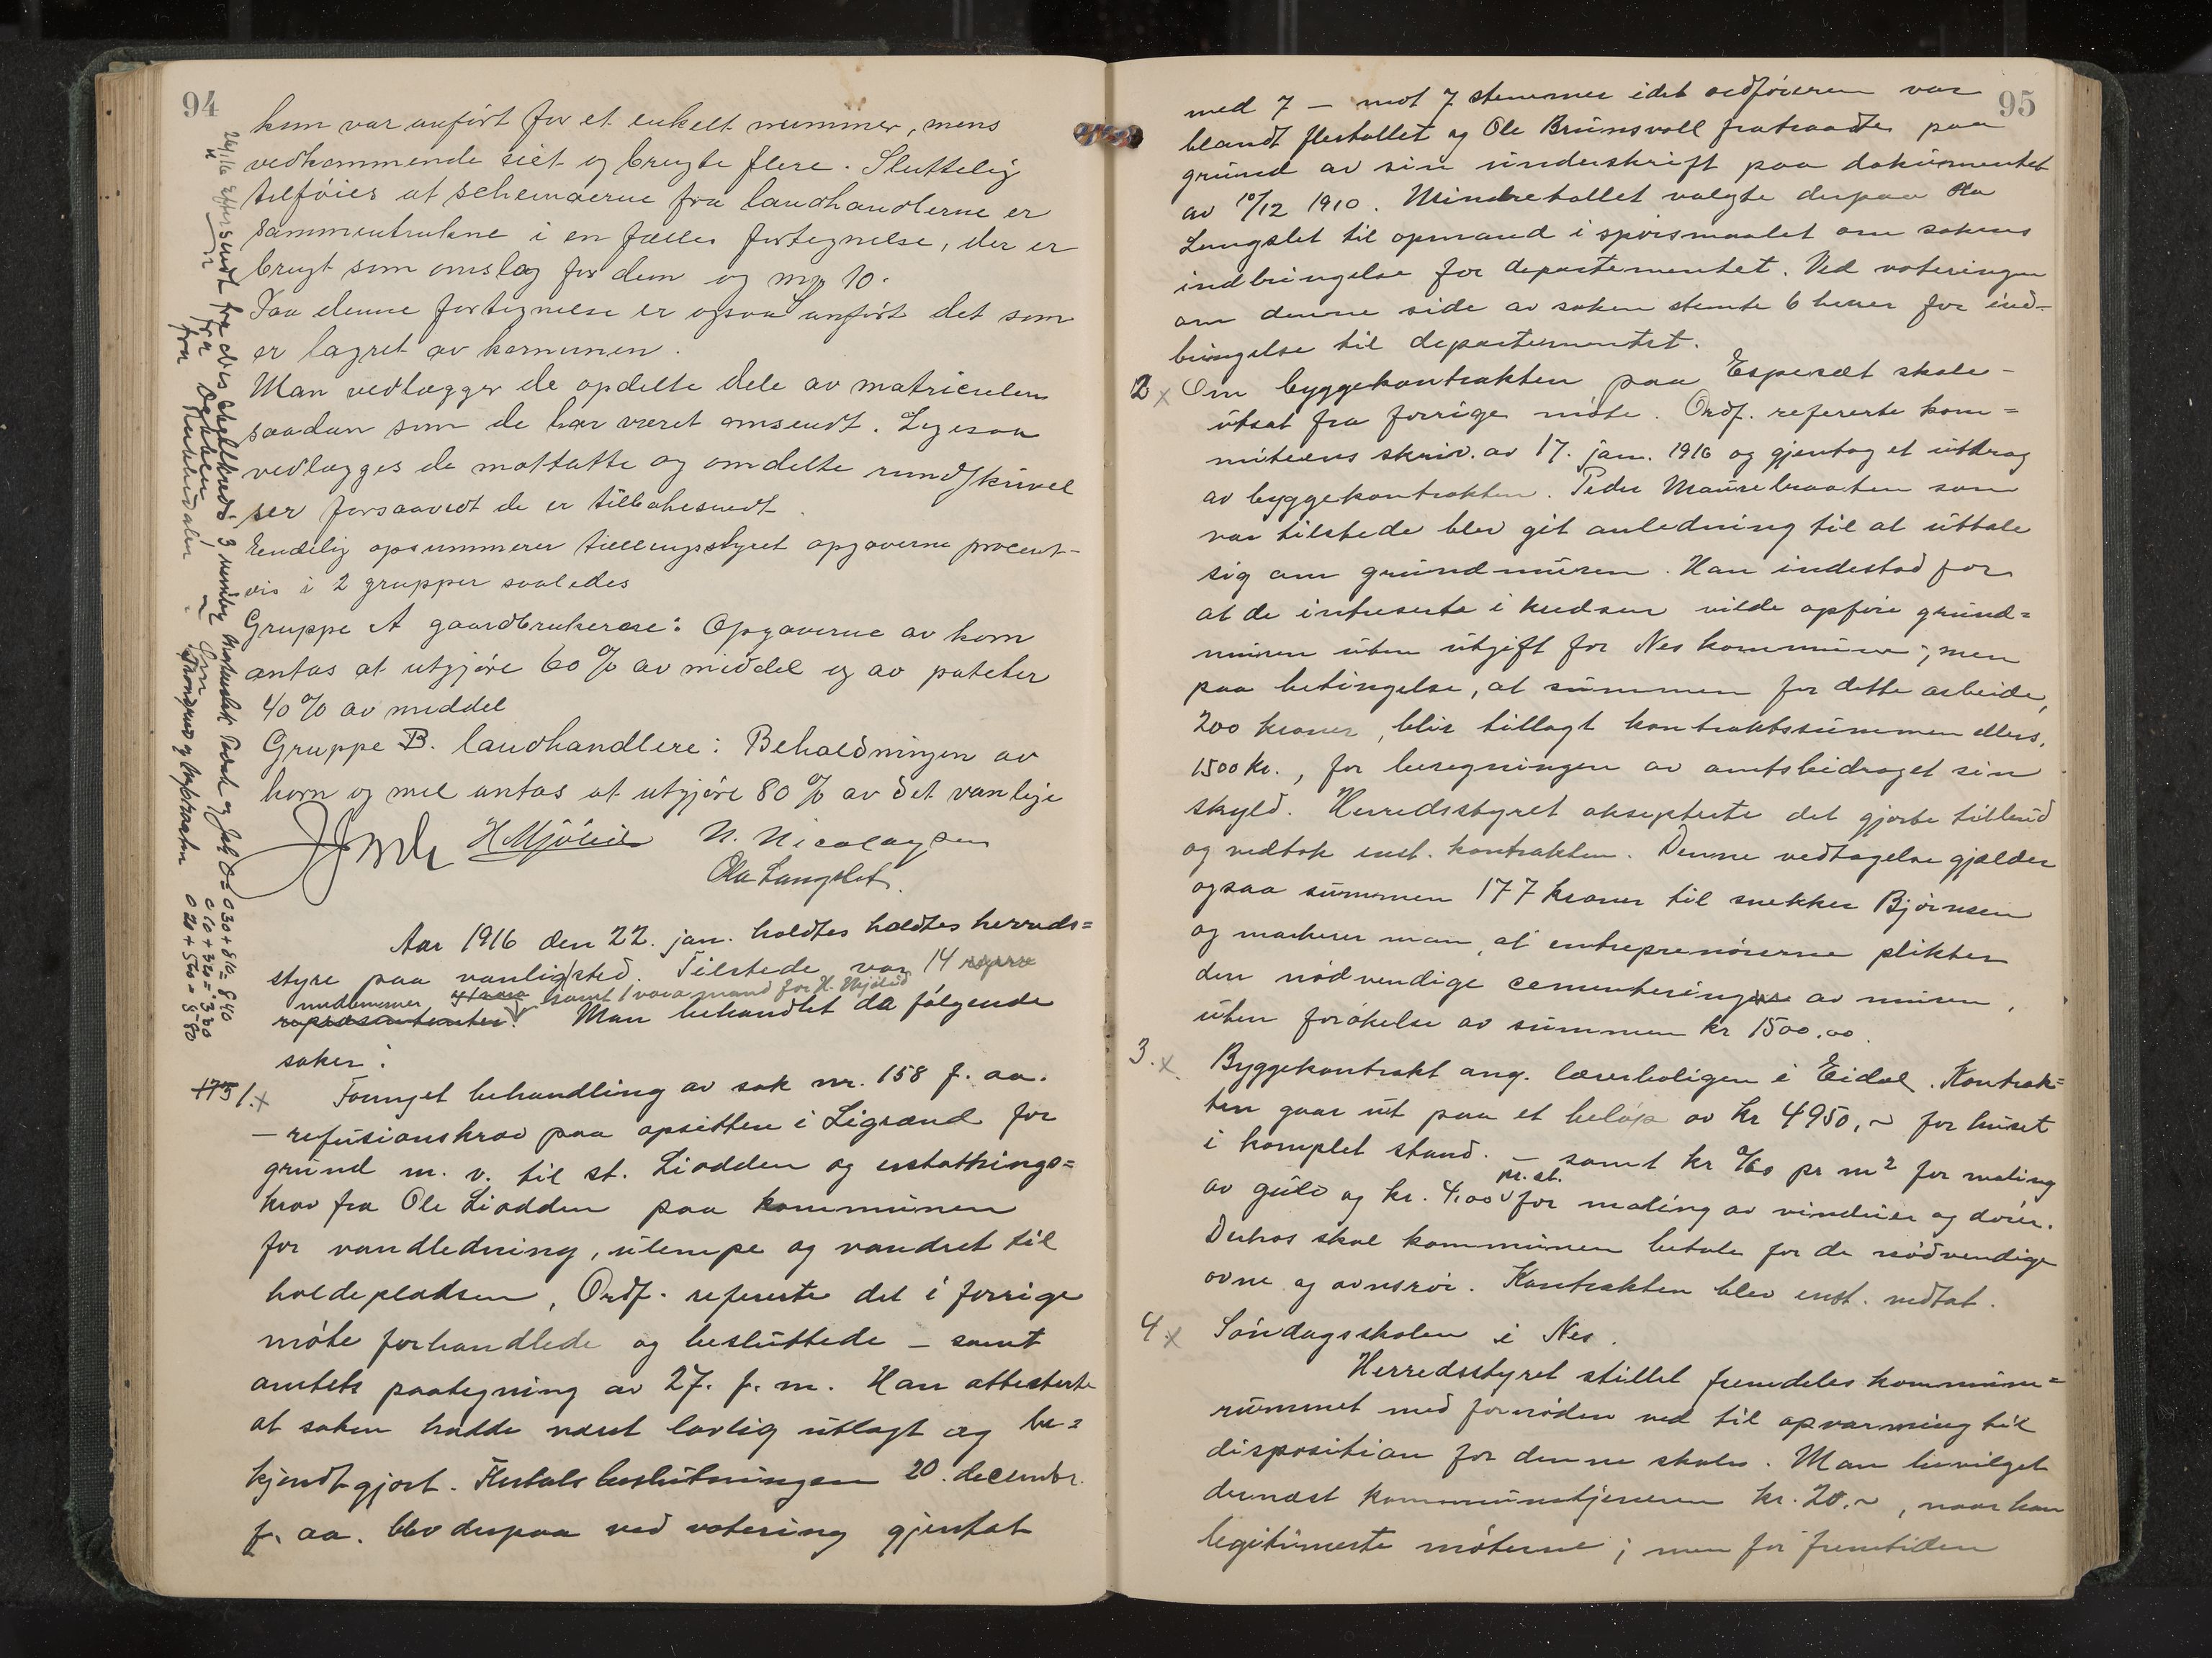 94
kun var anført for et enkelt nummer, mens
vedkommende eiet og brugte flere. Sluttelig
tilføies at schemaerne fra landhandlerne er
sammentrukne i en fælles fortegnelse, der er
brugt som omslag for dem og mrk 10.
Paa denne fortegnelse er ogsaa anført det som
er lagret av komunen.
Man vedlægger de opdelte dele av matriculen
saadan som de har været omsendt. Ligesaa
vedlægges de mottatte og omdelte rundskrivel
ser forsaavidt de er tilbakesendt.
Endelig opsummerer tællingsstyret opgaverne procent-
vis i 2 grupper saaledes
Gruppe A gaardbrukerne: Opgaverne av korn
antas at utgjøre 60 % av middel og av poteter
40 % av middel
Gruppe B. landhandlere: Beholdningen av
korn og mel antas at utgjøre 80 % av det vanlige
H Mjøliid N. Nicolaysen
Ola Langslet.
Aar 1916 den 22. jan. holdtes holdtes herreds=
styre paa vanlig sted. Tilstede var 14 repræ
medlemmer, samt 1 varamand for H. Mjøliid
repræsentanter. Man behandlet da følgende
saker:
175 1. x Fornyet behandling av sak nr. 158 f. aa.
— refusionskrav paa opsittere i Ligrænd for
grund m. v. til st. Liodden og erstatnings=
krav fra Ole Liodden paa kommunen
for vandledning, ulempe og vandret til
holdepladsen, Ordf. refererte det i forrige
møte forhandlede og besluttede — samt
amtets paategning av 27. f. m. Han attesterte
at saken hadde været lovlig utlagt og be=
kjendtgjort. Flertalsbeslutningen 20. decembr.
f. aa. blev derpaa ved votering gjentat
95
med 7 — mot 7 stemmer idet ordføreren var
blandt flertallet og Ole Brunsvoll fratraadte paa
grund av sin underskrift paa dokumentet
av 10/12 1910. Mindretallet valgte derpaa Ola
Langslet til opmand i spørsmaalet om sakens
indbringelse for departementet. Ved voteringen
om denne side av saken stemte 6 herrer for ind-
bringelse til departementet.
2 x Om byggekontrakten paa Espeset skole —
utsat fra forrige møte. Ordf. refererte kom=
miteens skriv. av 17. jan. 1916 og gjentog et utdrag
av byggekontrakten. Peder Maurebraaten som
var tilstede blev git anledning til at uttale
sig om grundmuren. Han indestod for
at de intreserte i kredsen vilde opføre grund=
muren uten utgift for Nes kommune; men
paa betingelse, at summen for dette arbeide,
200 kroner, blir tillagt kontraktssummen ellers,
1500 kr., for beregningen av amtsbidraget sin
skyld. Herredsstyret aksepterte det gjorte tilbud
og vedtok enst. kontrakten. Denne vedtagelse gjælder
ogsaa summen 177 kroner til snekker Bjørnsen
og markerer man, at entreprenørerne plikter
den nødvendige cementering av muren,
uten forøkelse av summen kr 1500.00.
3. x Byggekontrakt ang. lærerboligen i Eidal. Kontrak=
ten gaar ut paa et beløp av kr 4950,- for huset
i komplet stand. — samt kr 0/60 pr m² for maling
pr. st.
av gulv og kr. 4.00 for maling av vinduer og dører.
Derhos skal kommunen betale for de nødvendige
ovne og ovnsrør. Kontrakten blev enst. vedtat.
4. x Søndagsskolen i Nes.
Herredsstyret stillet fremdeles kommune=
rummet med fornøden ved til opvarming til
disposition for denne skole. Man bevilget
dernæst kommunetjeneren kr. 20.-, naar han
legitimerte møterne; men for fremtiden